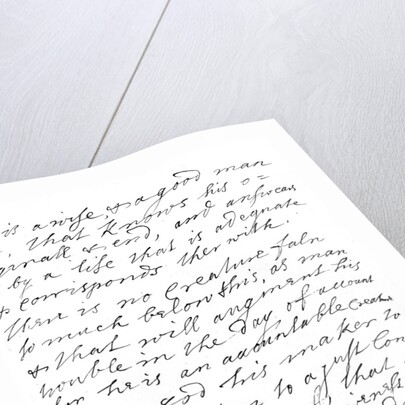 is a wise, & a good man
, that knows his o=
ginall & end, and answears
by a life that is adequate
& corresponds therwith.
there is no creature faln
so much below this, as man
& that will augment his
trouble in the day of account
for he is an accountable Creature
God his maker to
to a just Con
, that